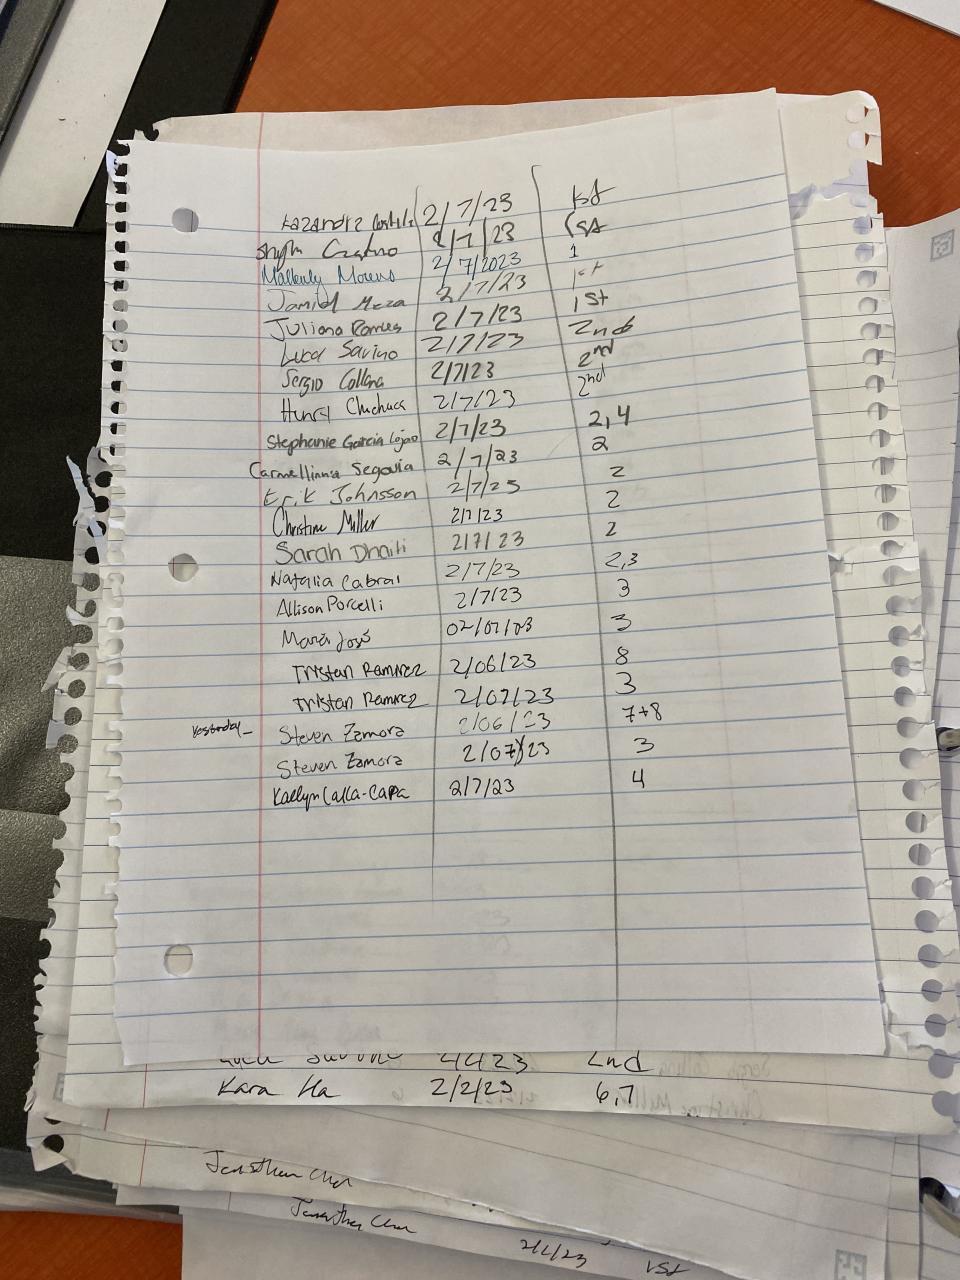 Kazandra Castillo 2/7/23 1st
2/7/23 1st
Mallerly Moreno 2/7/2023 1
Jamid Meza 2/7/23 1st
Juliana Ramles 2/7/23 1st
Luca Savino 2/7/23 2nd
Sergio Collana 2/7/23 2nd
Henry Chuchuca 2/7/23 2nd
Stephanie Garcia Lojano 2/7/23 2,4
Carmellinna Segovia 2/7/23 2
Erik Johnsson 2/7/23 2
Christine Miller 2/7/23 2
Sarah Dhaiti 2/7/23 2
Natalia Cabral 2/7/23 2,3
Allison Porcelli 2/7/23 3
María José 02/07/23 3
Tristan Ramirez 2/06/23 8
Tristan Ramirez 2/07/23 3
Yesterday_ Steven Zamora 2/06/23 7+8
Steven Zamora 2/07/23 3
Kaelyn Calla-Capa 2/7/23 4
2nd
Kara Ha 2/2/23 6,7
Jonathan
Jonathan
1st